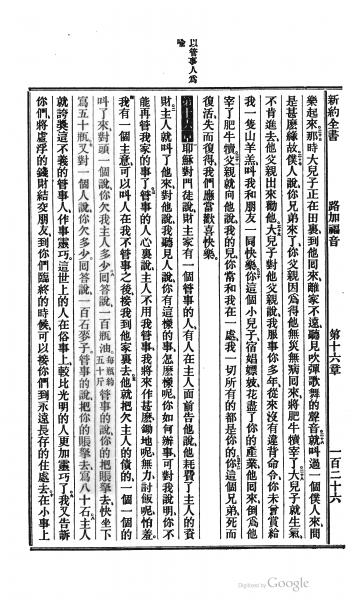 以管事人為
喻
新約全書 路加福音 第十六章 一百二十六
樂起來那時大兒子正在田裏他回來離家不遠聽見吹彈歌舞的聲音就叫過一個僕人來問
是甚麽緣故僕人說你兄弟來了你父親因為得他無災無病回來將肥牛犢宰了大兒子就生氣
不肯進去他父親出來勸他大兒子對他父親說我服事你多年從來沒有違背命令你未曾賞給
我一隻山羊羔叫我和朋友一同快樂你這個小兒子宿娼嫖妓花盡了你的產業他回來倒為他
宰了肥牛犢父親就向他說我的兒你常和我在一處我一切所有的都是你的你這個兄弟死而
復活失而復得我們應當歡喜快樂
第十六章耶穌對門徒說財主家有一個管事的人有人在主人面前告他說他耗費了主人的貲
財主人就叫了他來對他說我聽見人說你有這樣的事怎麽樣呢你如何辦事可對我說明你不
能再管我家的事了管事的人心裏說主人不用我管事我將來作甚麽鋤地呢無力討飯呢怕羞
我有一個主意可以叫人在我不管事之後接我到他家裏去他就把欠主人的債的一個一個的
叫了來對頭一個說你欠我主人多少回答說一百瓶油每瓶約五十斤管事的說你的賬拏去快坐下
寫五十瓶又對一個人說你欠多少回答說一百石麥子管事的說把你的賬拏去寫八十石主人
就誇獎這不義的管事人作事靈巧這世上的人在俗事上較比光明的人更加靈巧了我又告訴
你們將虛浮的錢財結交朋友到你們臨終的時候可以接你們到永遠長存的住處去在小事上
Digitized by Google